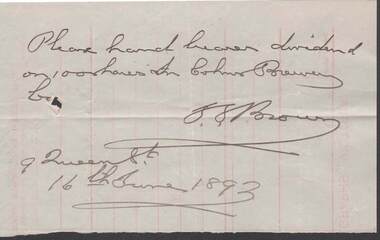 Please hand bearer dividend
on 100 shares in Cohns Brewery
Co
9 Queen St.
16th June 1893